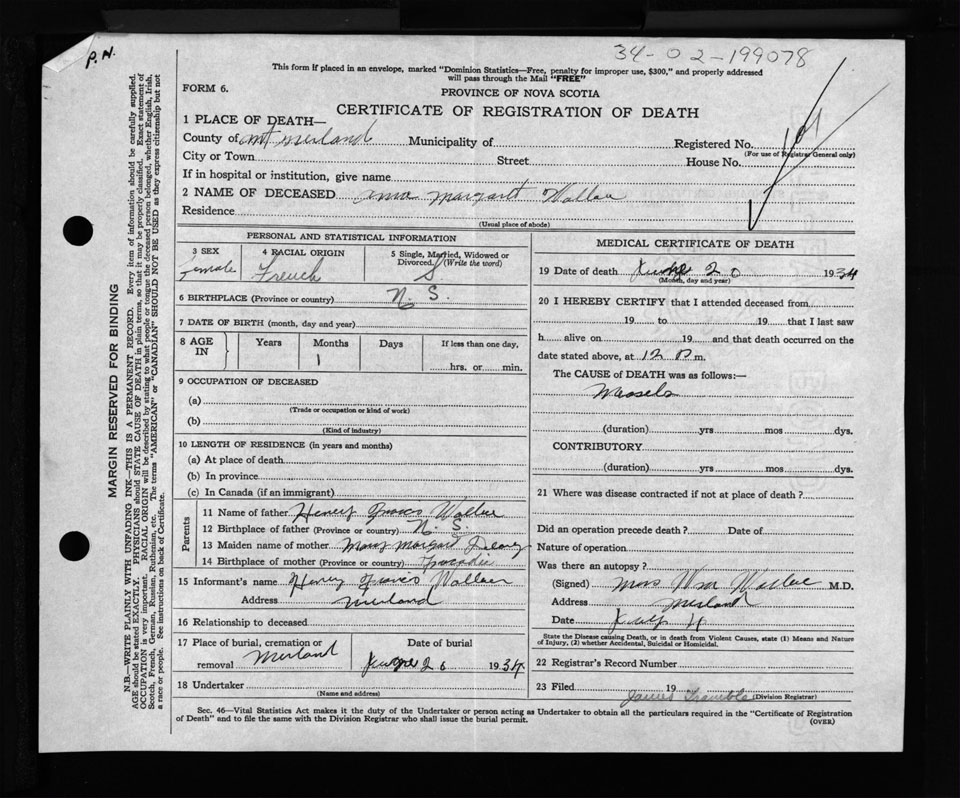 P.N.
34-02-199078
This form if placed in an envelope, marked "Dominion Statistics—Free, penalty for improper use, $300," and properly addressed
will pass through the Mail "FREE"
FORM 6.
PROVINCE OF NOVA SCOTIA
CERTIFICATE OF REGISTRATION OF DEATH
1 PLACE OF DEATH—
County of Merland Municipality of Registered No.
(For use of Registrar General only)
City or Town Street House No.
If in hospital or institution, give name
2 NAME OF DECEASED Anna Margaret Wallace
Residence
(Usual place of abode)
PERSONAL AND STATISTICAL INFORMATION
3 SEX 4 RACIAL ORIGIN 5 Single, Married, Widowed or Divorced. (Write the word)
Female French S
6 BIRTHPLACE (Province or country) N. S.
7 DATE OF BIRTH (month, day and year)
8 AGE IN Years Months Days If less than one day,
1 hrs. or min.
9 OCCUPATION OF DECEASED
(a)
(Trade or occupation or kind of work)
(b)
(Kind of industry)
10 LENGTH OF RESIDENCE (in years and months)
(a) At place of death
(b) In province
(c) In Canada (if an immigrant)
Parents
11 Name of father Henry Francis Wallace
12 Birthplace of father (Province or country) N. S.
13 Maiden name of mother Mary Margaret
14 Birthplace of mother (Province or country)
15 Informant's name Henry Francis Wallace
Address Merland
16 Relationship to deceased
17 Place of burial, cremation or removal Merland
Date of burial June 20 1934
18 Undertaker
(Name and address)
MEDICAL CERTIFICATE OF DEATH
19 Date of death June 20 1934
(Month, day and year)
20 I HEREBY CERTIFY that I attended deceased from
19 to 19 that I last saw
h alive on 19 and that death occurred on the
date stated above, at 12 P m.
The CAUSE of DEATH was as follows:—
Measels
(duration) yrs mos dys.
CONTRIBUTORY
(duration) yrs mos dys.
21 Where was disease contracted if not at place of death?
Did an operation precede death? Date of
Nature of operation
Was there an autopsy?
(Signed) Mrs Wm Wallace M.D.
Address Merland
Date July 4
State the Disease causing Death, or in death from Violent Causes, state (1) Means and Nature
of Injury, (2) whether Accidental, Suicidal or Homicidal.
22 Registrar's Record Number
23 Filed 19 James Tramble
(Division Registrar)
Sec. 46—Vital Statistics Act makes it the duty of the Undertaker or person acting as Undertaker to obtain all the particulars required in the "Certificate of Registration
of Death" and to file the same with the Division Registrar who shall issue the burial permit.
(OVER)
MARGIN RESERVED FOR BINDING
N.B.—WRITE PLAINLY WITH UNFADING INK—THIS IS A PERMANENT RECORD. Every item of information should be carefully supplied.
AGE should be stated EXACTLY. PHYSICIANS should STATE CAUSE OF DEATH in plain terms, so that it may be properly classified. Exact statement of
OCCUPATION is very important. RACIAL ORIGIN will be described by stating to what people or tongue the deceased person belonged, whether English, Irish,
Scotch, French, German, Russian, Ruthenian, etc. The terms "AMERICAN" or "CANADIAN" SHOULD NOT BE USED as they express citizenship but not
a race or people. See instructions on back of Certificate.